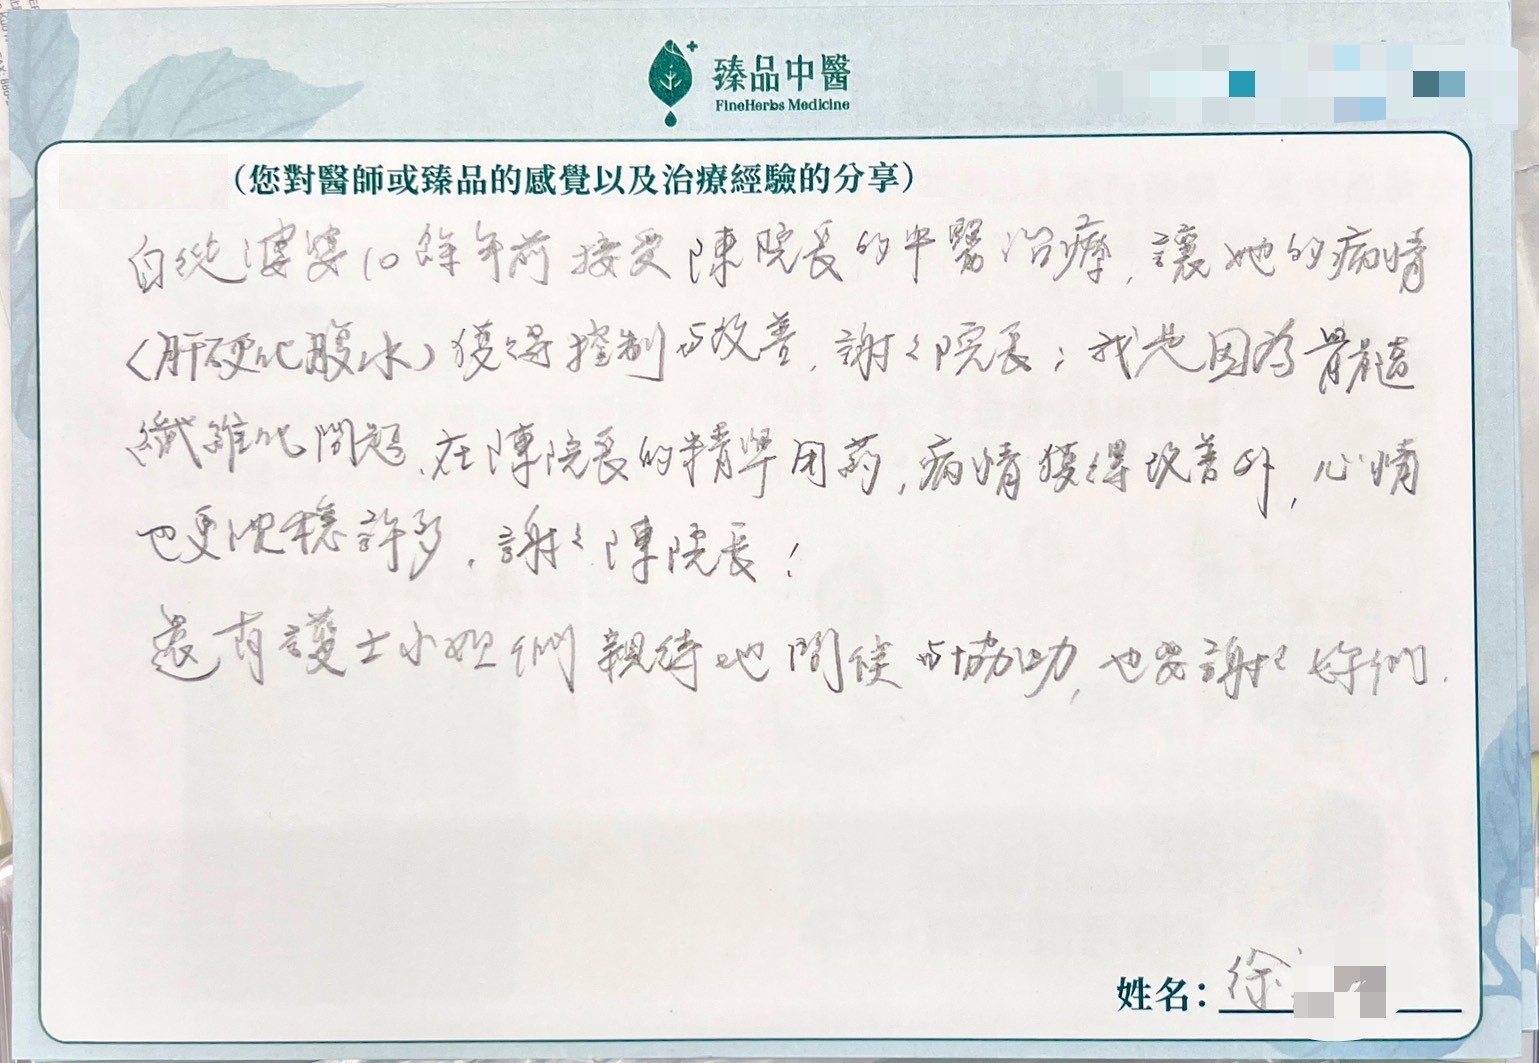 臻品中醫
FineHerbs Medicine
（您對醫師或臻品的感覺以及治療經驗的分享）
自從婆婆10餘年前接受陳院長的中醫治療，讓她的病情
（肝硬化腹水）獲得控制与改善，謝々院長；我也因為骨髓
纖維化問題，在陳院長的精準用药，病情獲得改善外，心情
也更沈穩許多，謝々陳院長！
還有護士小姐們親待地問候与協功，也要謝々妳們.
姓名：徐